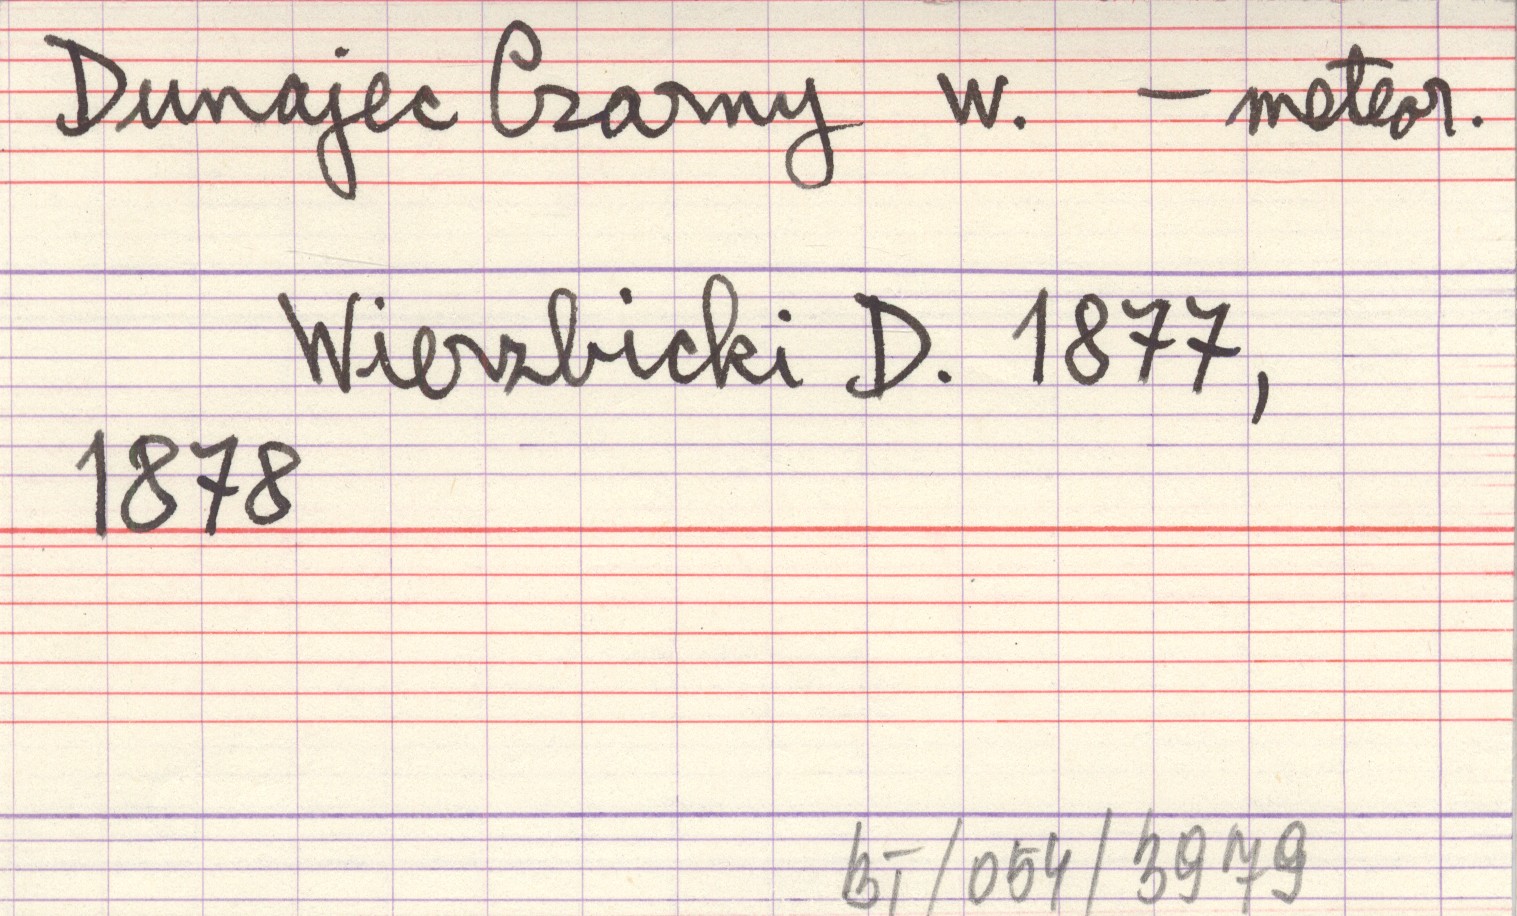 Dunajec Czarny w. - meteor.
Wierzbicki D. 1877,
1878
bI/054/3979